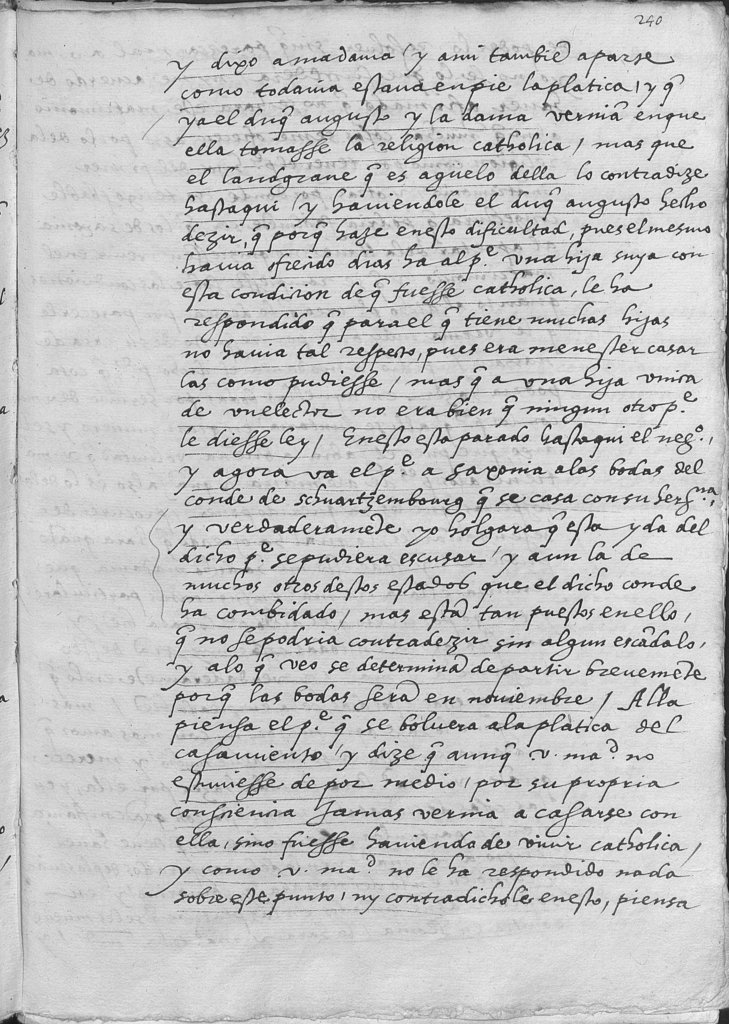 240
y dixo a madama / y a mi tambiē aparse
como todauia estaua en pie la platica / y q̄
ya el duq̄ augusto y la dama verniā en que
ella tomasse la religion catholica / mas que
el landgraue q̄ es aguelo della lo contradize
hasta qui / y hauiendole el duq̄ augusto hecho
dezir, q̄ porq̄ haze en esto dificultad, pues el mesmo
hauia ofrecido dias ha al p.e vna hija suya con
esta condicion de q̄ fuesse catholica, le ha
respondido q̄ para el q̄ tiene muchas hijas
no hauia tal respeto, pues era menester casar
las como pudiesse / mas q̄ a vna hija vnica
de vn elector no era bien q̄ ningun otro p.e
le diesse ley / En esto esta parado hasta qui el neg.o,
y agora va el p.e a saxonia a las bodas del
conde de schuartzembourg q̄ se casa con su herm.na,
y verdaderamēte yo holgara q̄ esta yda del
dicho p.e se pudiera escusar / y aun la de
muchos otros destos estados que el dicho conde
ha combidado / mas estā tan puestos en ello,
q̄ no se podria contradezir sin algun escādalo,
y a lo q̄ veo se determinā de partir breuemēte
porq̄ las bodas serā en nouiembre / Alla
piensa el p.e q̄ se boluera a la platica del
casamiento / y dize q̄ aunq̄ v. ma.d no
estuuiesse de por medio / por su propria
consciencia Jamas vernia a casarse con
ella, sino fuesse hauiendo de viuir catholica /
y como v. ma.d no le ha respondido nada
sobre este punto / ny contradichole en esto, piensa